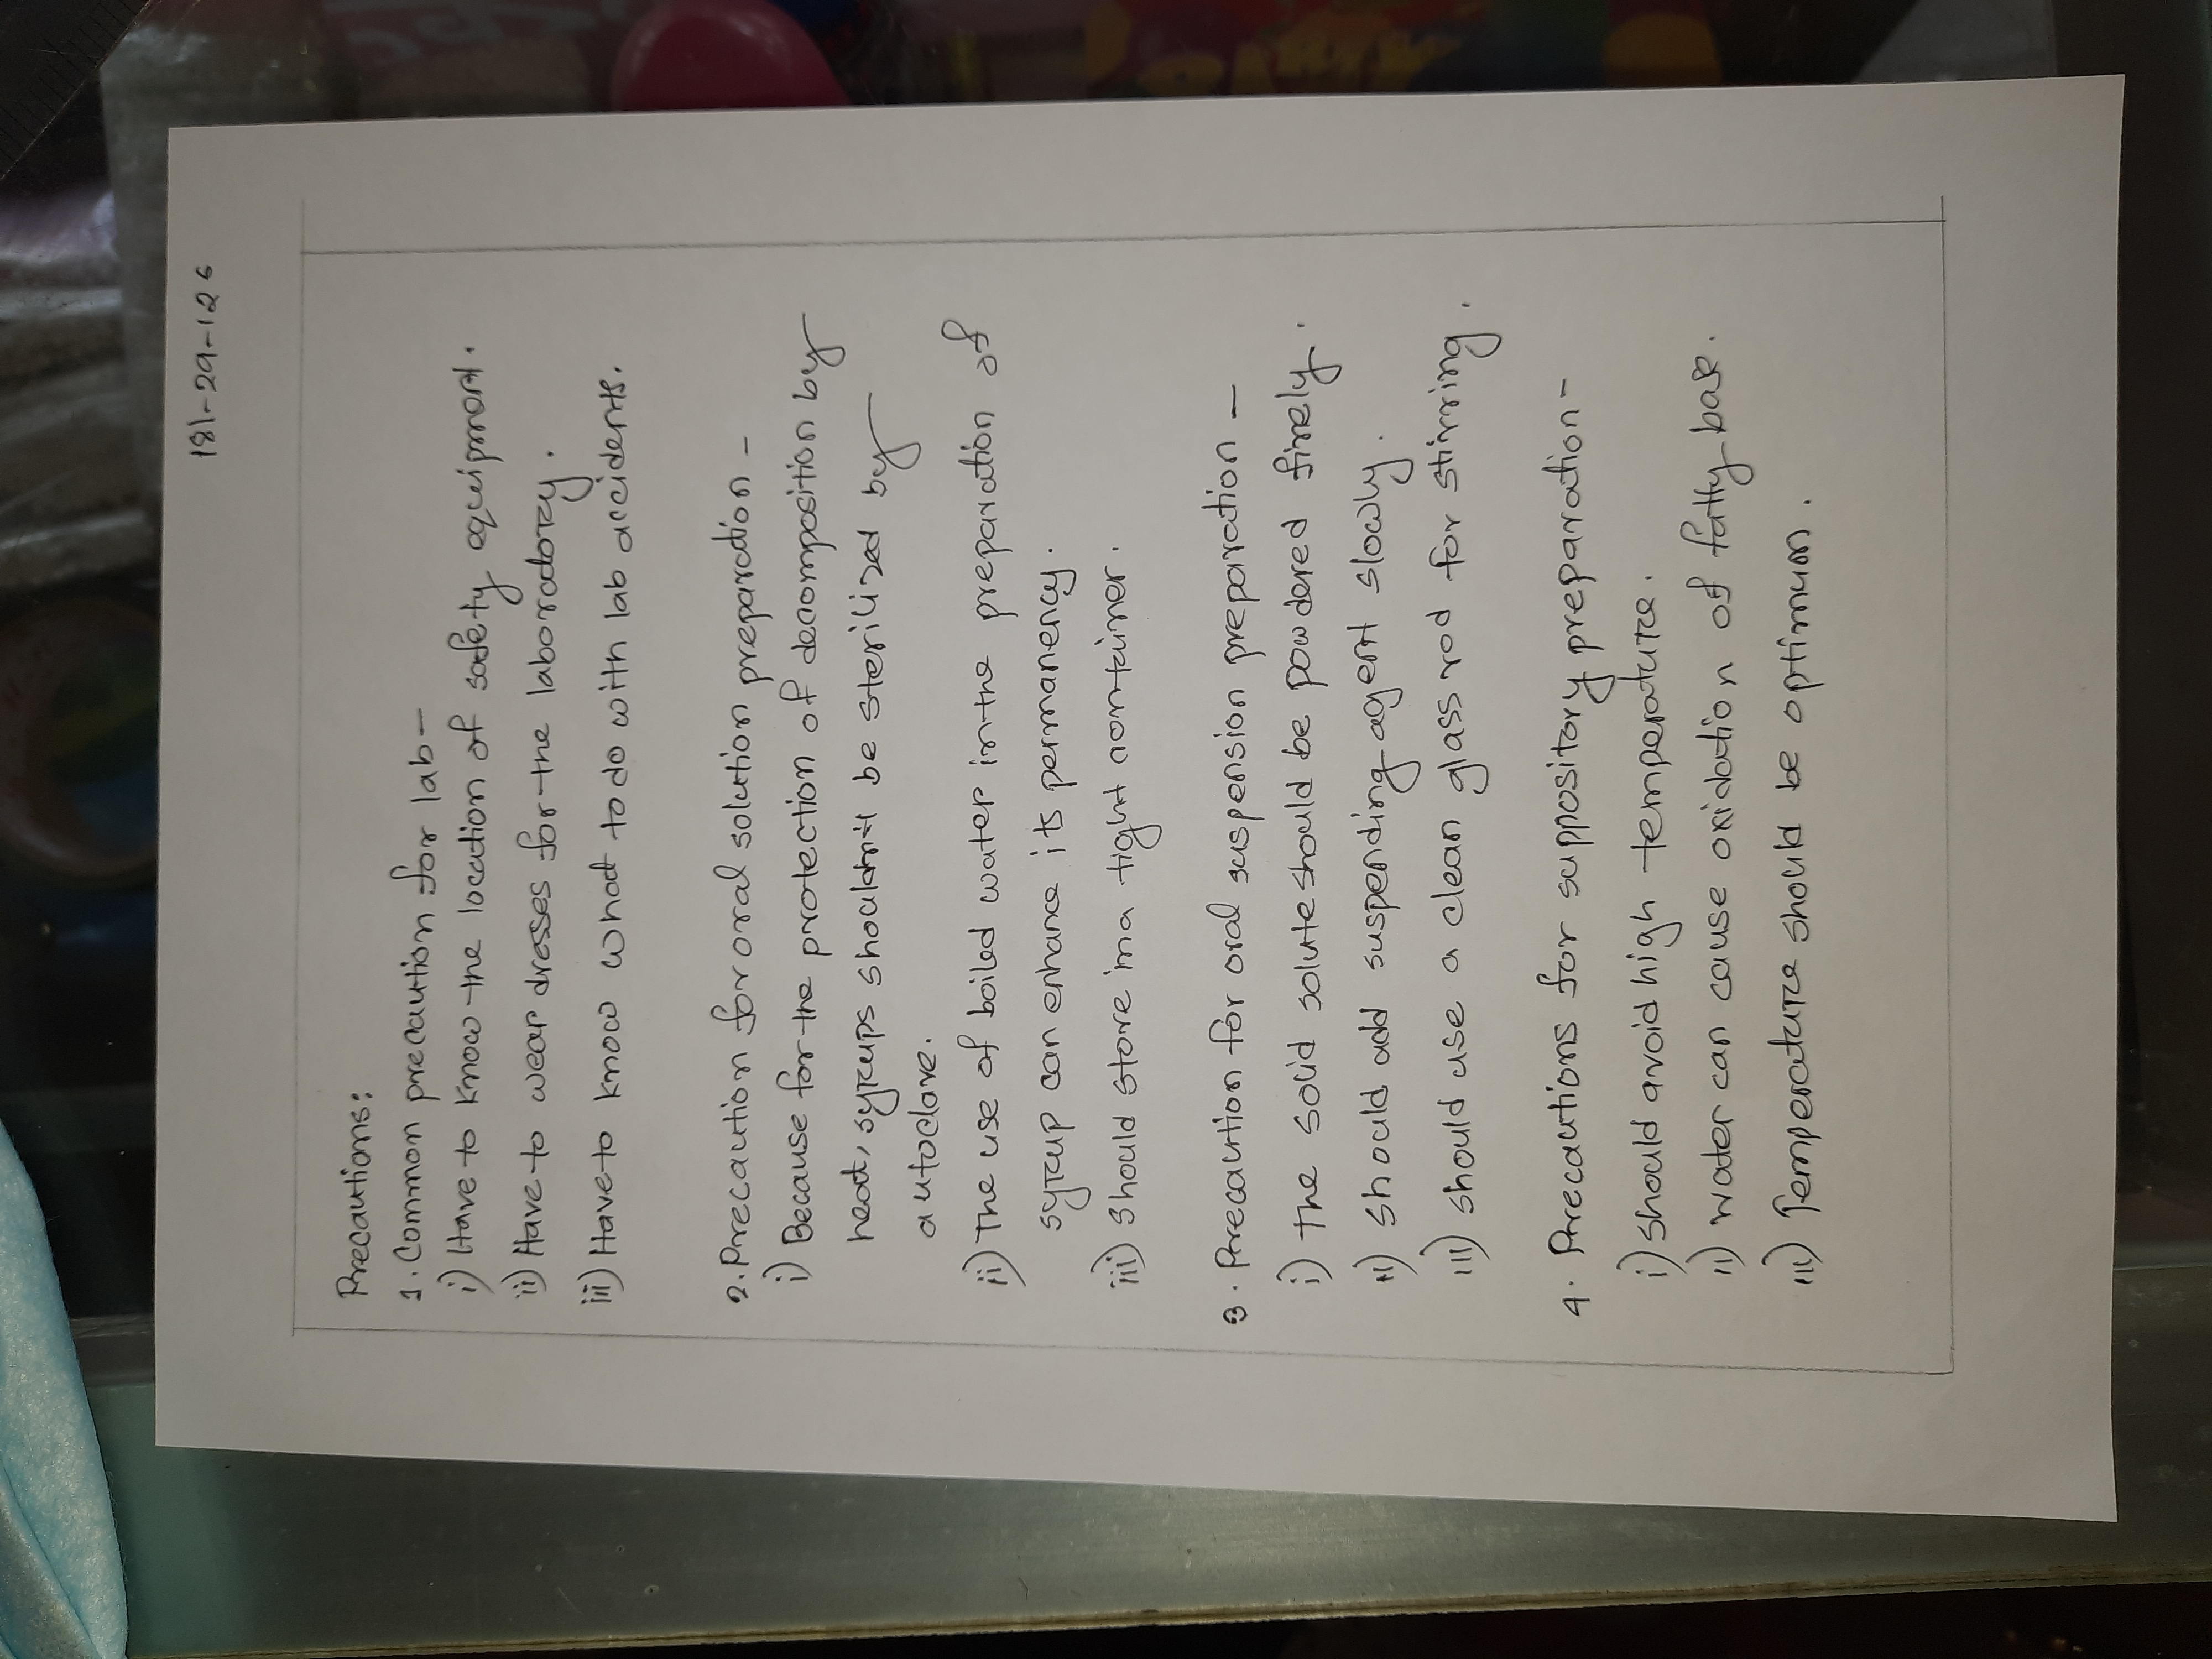 181-29-126
Precautions:
1. Common precaution for lab-
i) Have to know the location of safety equipment.
ii) Have to wear dresses for the laboratory.
iii) Have to know what to do with lab accidents.
2. Precaution for oral solution preparation -
i) Because for the protection of decomposition by
heat, syrups shouldn't be sterilized by
autoclave.
ii) The use of boiled water in the preparation of
syrup can enhance its permanency.
iii) Should store in a tight container.
3. Precaution for oral suspension preparation -
i) The solid solute should be powdered finely.
ii) Should add suspending agent slowly.
iii) should use a clean glass rod for stirring.
4. Precautions for suppository preparation-
i) should avoid high temperature.
ii) water can cause oxidation of fatty base.
iii) Temperature should be optimum.